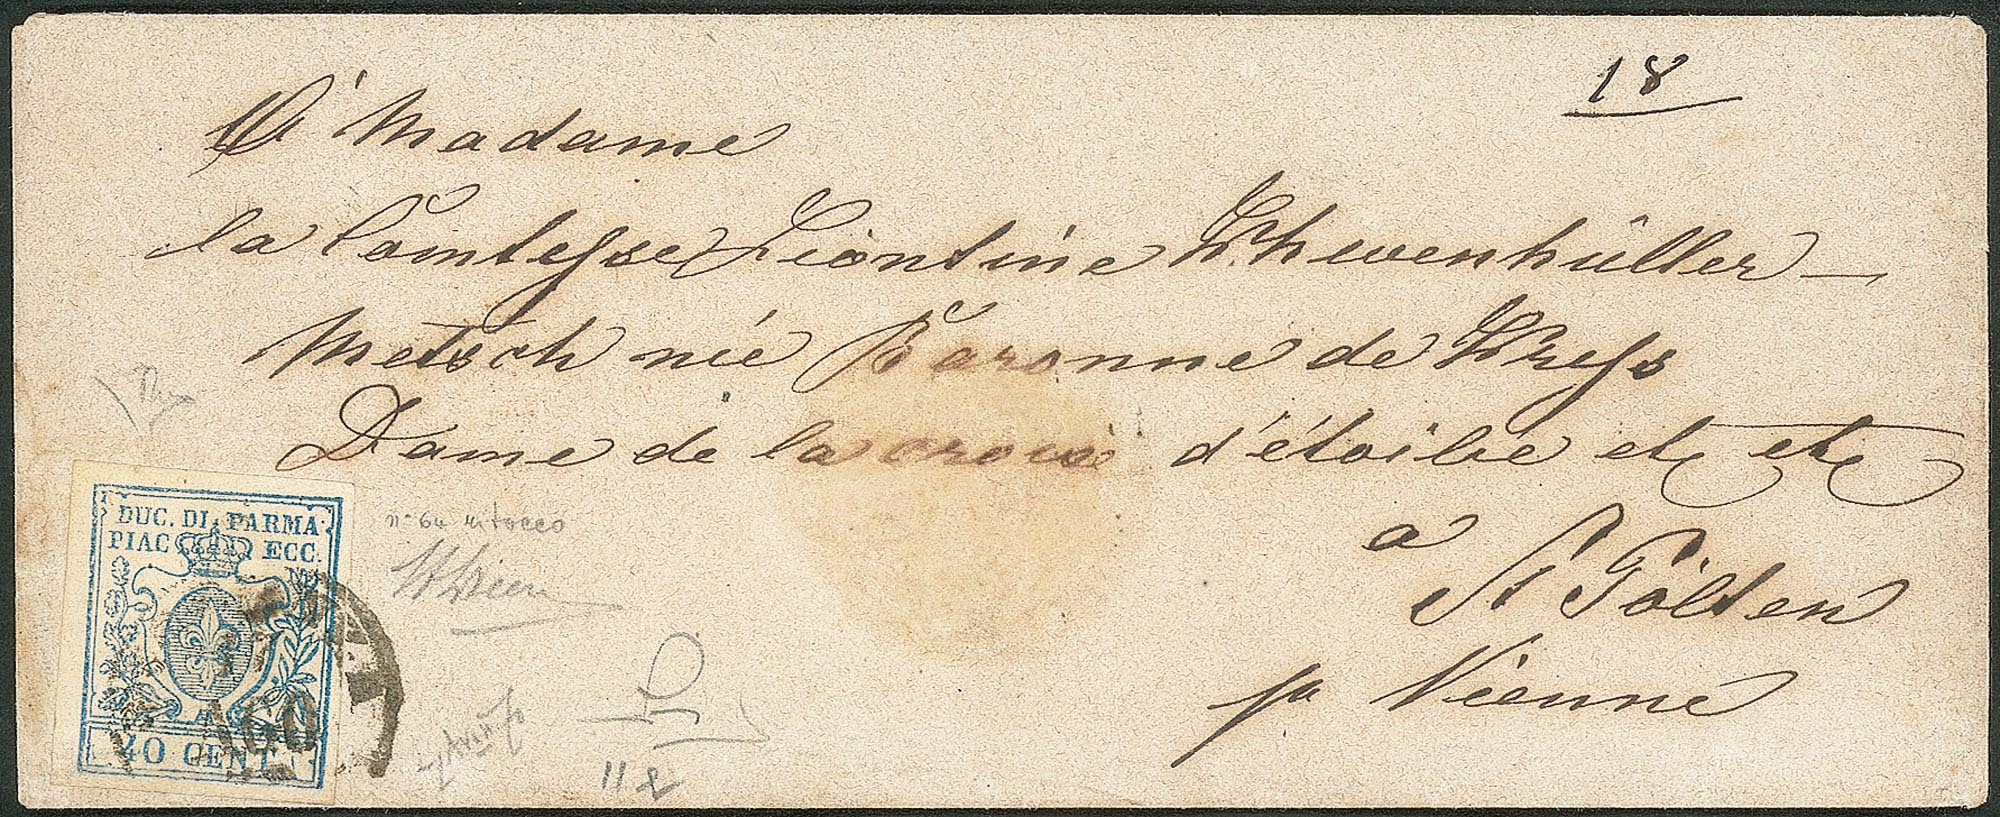 18
A Madame
la Comtesse Léontine Khevenhüller —
Metsch née Baronne de Kress
Dame de la croix d'étoilée etc etc
à
St Pölten
pr Vienne
DUC. DI. PARMA.
PIAC ECC.
40 CENT
AGO